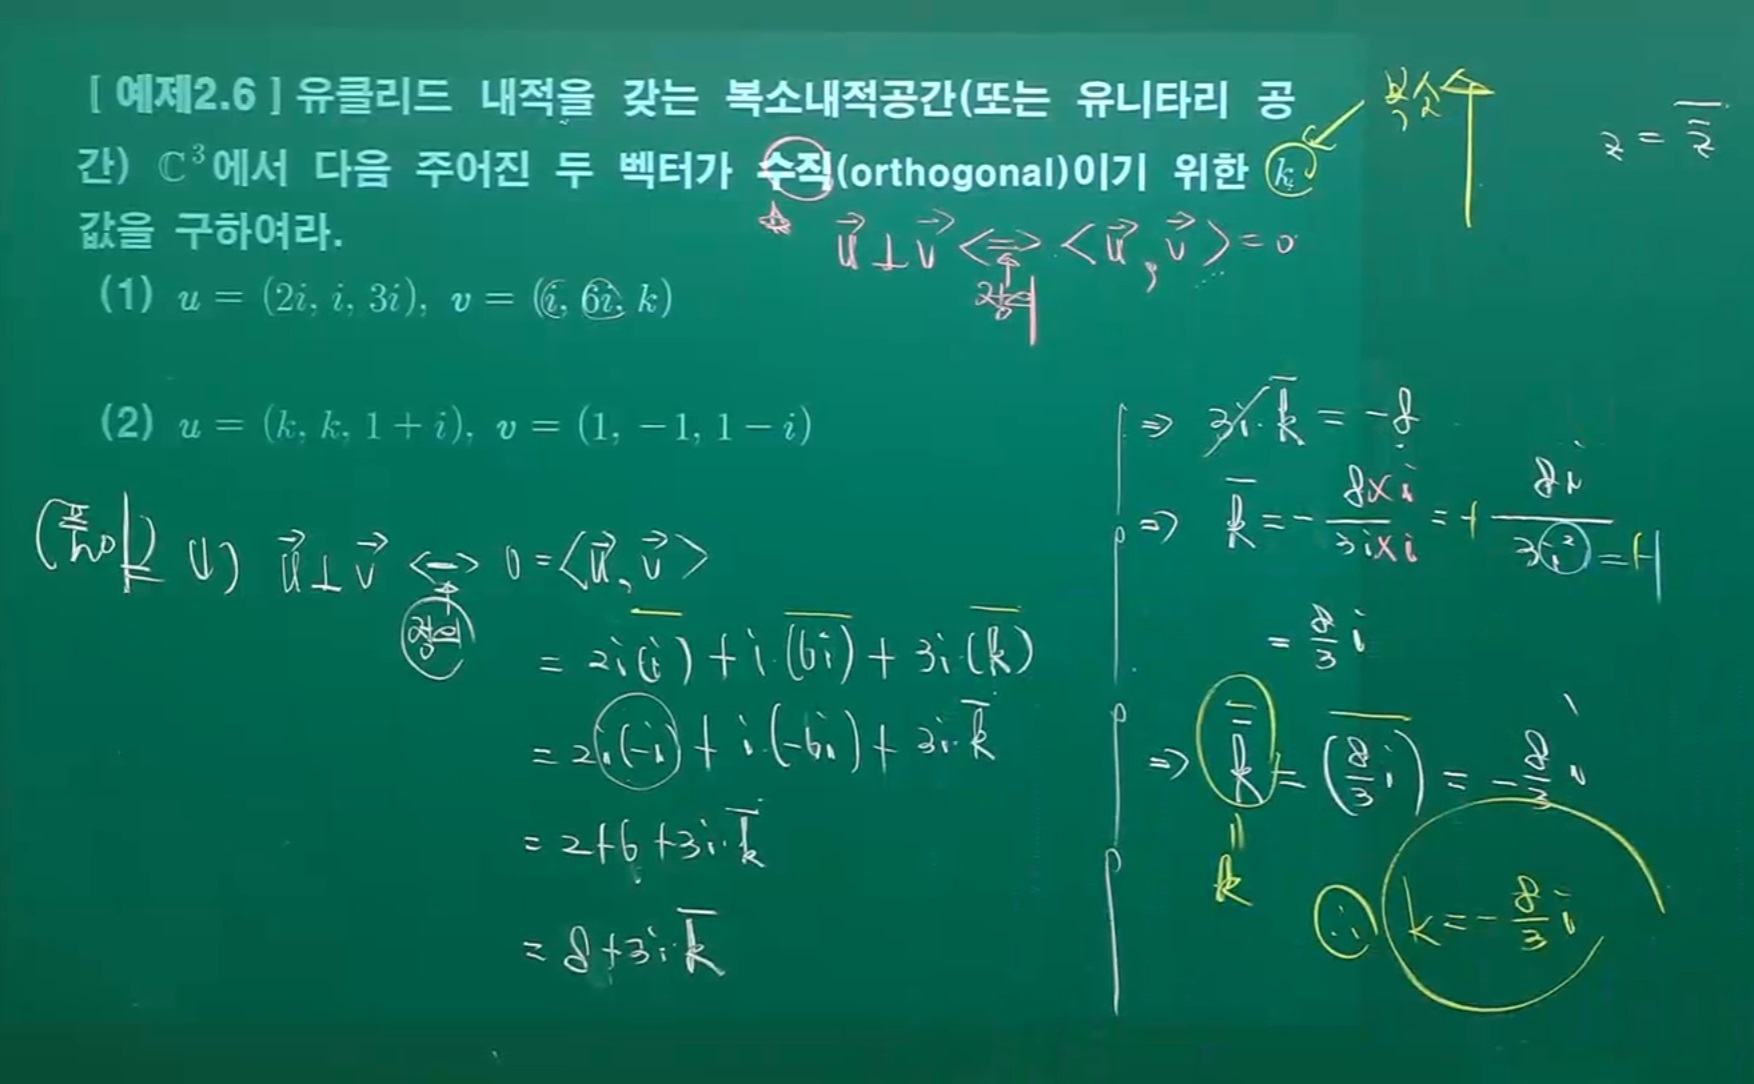 [ 예제2.6 ] 유클리드 내적을 갖는 복소내적공간(또는 유니타리 공
간) ℂ³에서 다음 주어진 두 벡터가 수직(orthogonal)이기 위한 k
값을 구하여라.
복소수
z = \overline{\overline{z}}
\vec{u} ⊥ \vec{v} <=> <\vec{u}, \vec{v}> = 0
정의
(1) u = (2i, i, 3i), v = (i, 6i, k)
(2) u = (k, k, 1 + i), v = (1, −1, 1 − i)
(풀이) (1) \vec{u} ⊥ \vec{v} <=> 0 = <\vec{u}, \vec{v}>
정의
= 2i(\overline{i}) + i·(\overline{6i}) + 3i·(\overline{k})
= 2i(-i) + i·(-6i) + 3i·\overline{k}
= 2+6+3i·\overline{k}
= 8+3i·\overline{k}
⇒ 3i·\overline{k} = -8
⇒ \overline{k} = - \frac{8×i}{3i×i} = + \frac{8i}{3i²} = -1
= \frac{8}{3} i
⇒ \overline{\overline{k}} = \overline{(\frac{8}{3} i)} = - \frac{8}{3} i
||
k
∴ k = - \frac{8}{3} i